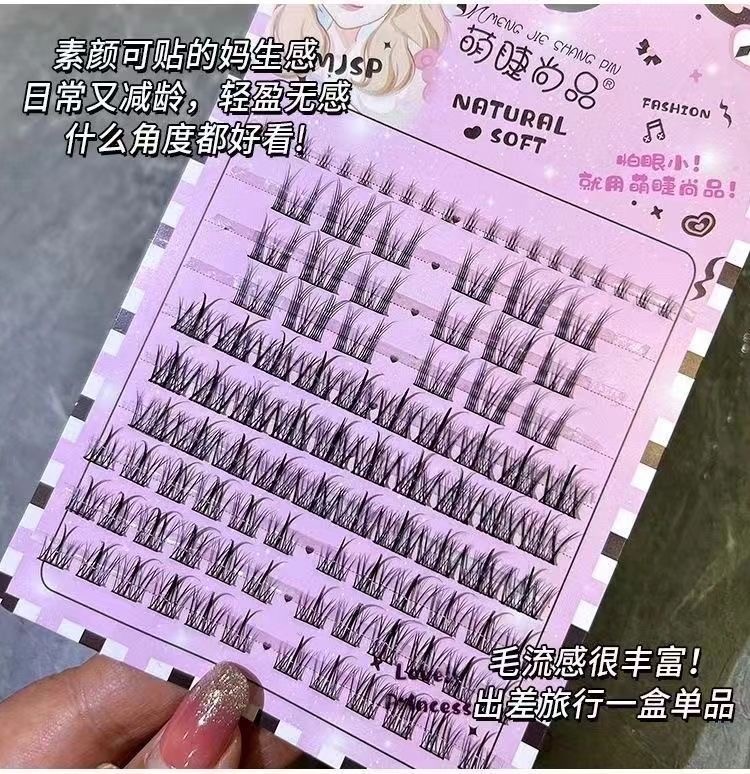 素颜可贴的妈生感
日常又减龄，轻盈无感
什么角度都好看!
MJSP
MENG JIE SHANG PIN
萌睫尚品®
NATURAL
SOFT
FASHION
怕眼小!
就用萌睫尚品!
毛流感很丰富!
出差旅行一盒单品
Lovely
Princess